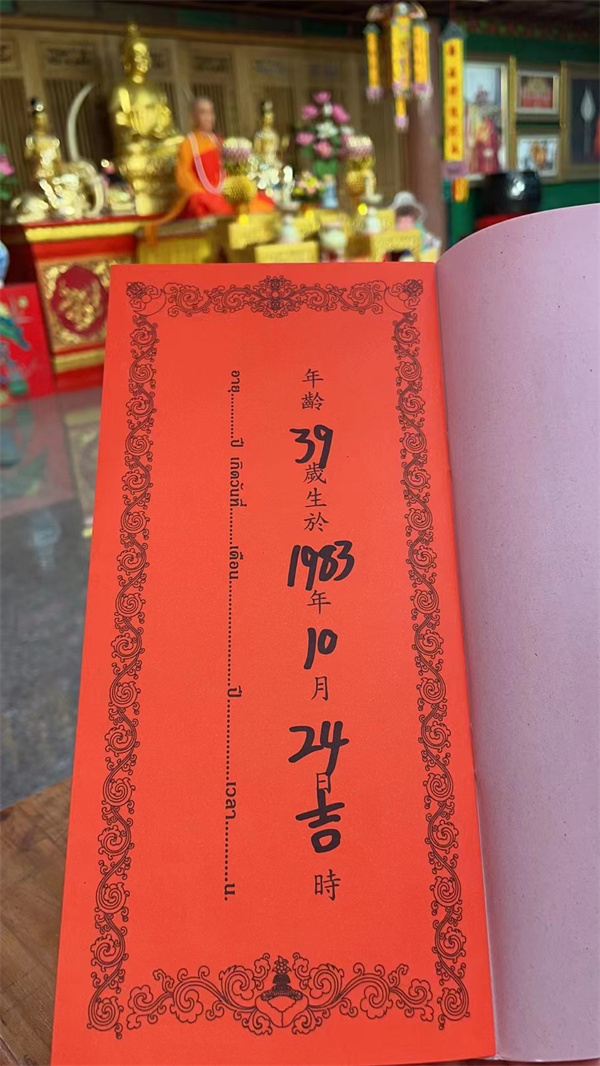 年齡39歲生於1983年10月24日吉時
อายุ..........ปี เกิดวันที่..........เดือน....................ปี....................เวลา..........น.